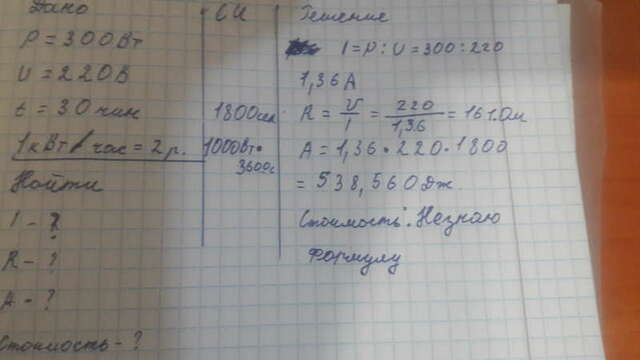 Дано
P = 300Вт
U = 220В
t = 30 мин
1кВт/час = 2р.
Найти
I - ?
R - ?
A = ?
Стоимость - ?
СИ
1800сек.
1000Вт•
3600с
Решение
I = P : U = 300 : 220
1,36А
R = U/I = 220/1,36 = 161.Ом
A = 1,36 • 220 • 1800
= 538,560Дж.
Стоимость: Незнаю
формулу